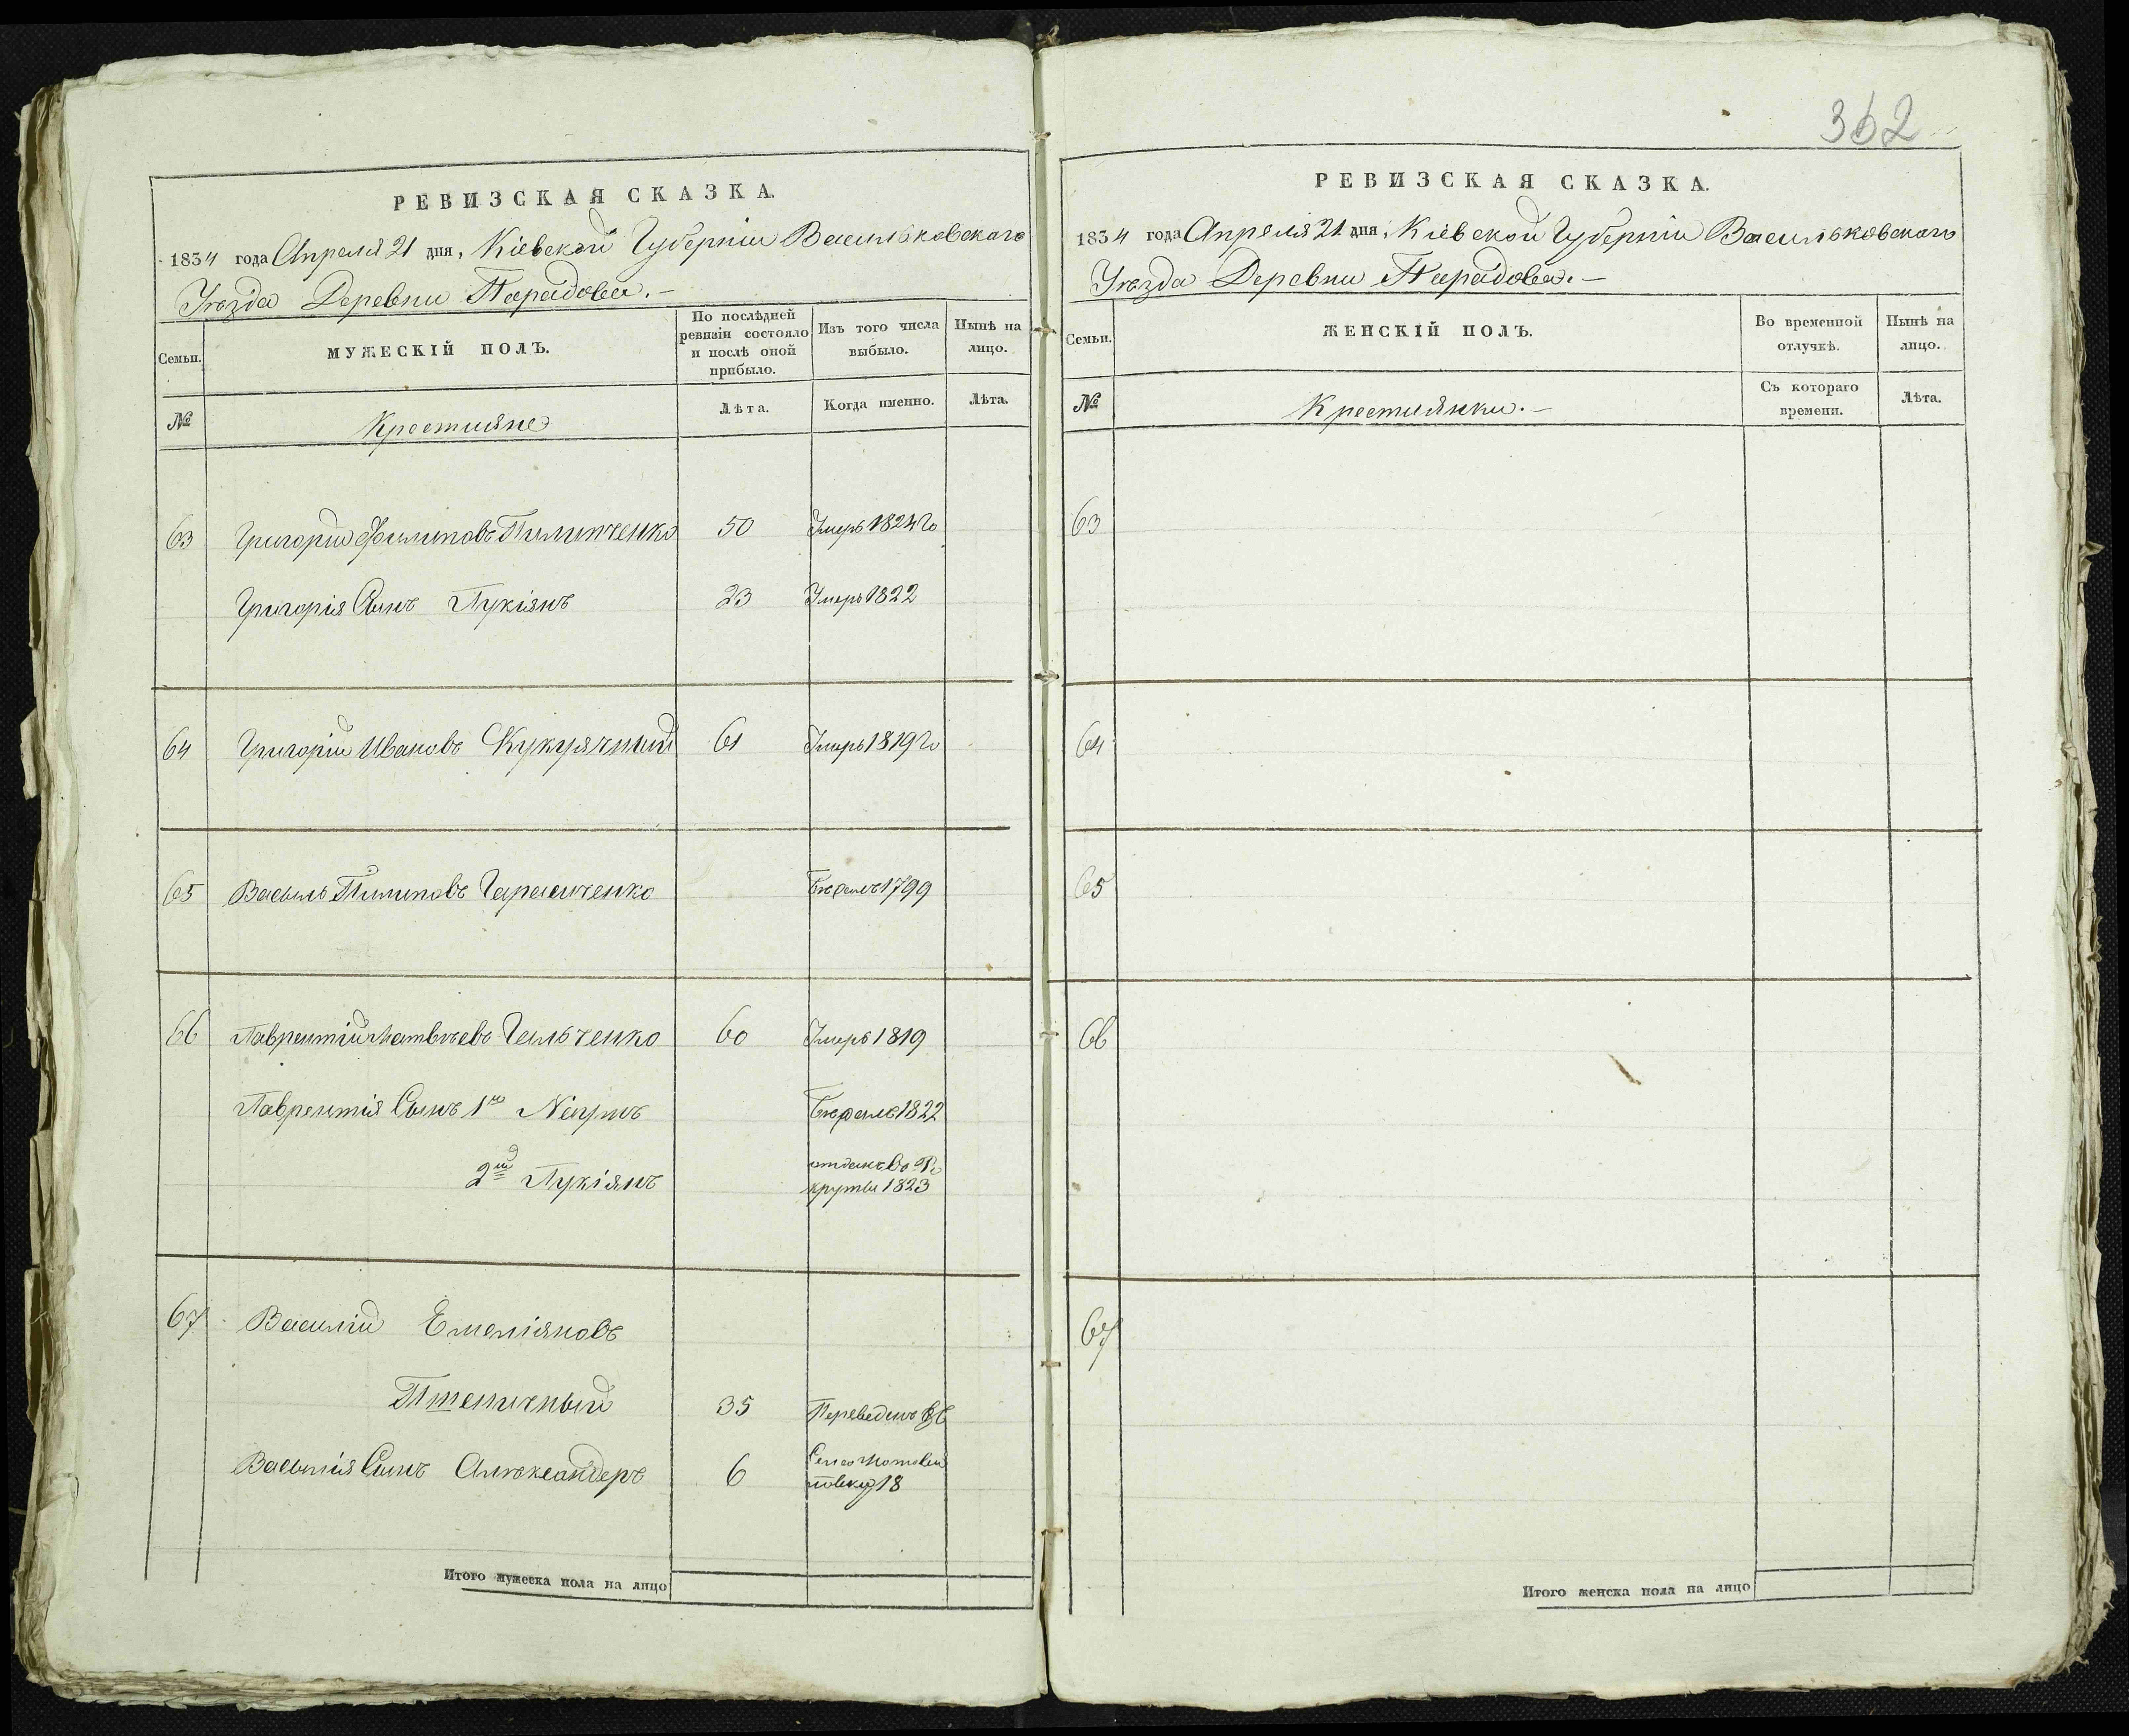 362
РЕВИЗСКАЯ СКАЗКА.
1834 года Апреля 21 дня, Кіевской Губерніи Васильковскаго
Уѣзда Деревни Парадова.
Семьи.
МУЖЕСКІЙ ПОЛЪ.
По послѣдней
ревизіи состояло
и послѣ оной
прибыло.
Изъ того числа
выбыло.
Нынѣ на
лицо.
№
Крестияне
Лѣта.
Когда именно.
Лѣта.
63 Григорій Филиповъ Пилипченко 50 Умеръ 1824 го
Григорія Сынъ Лукіянъ 23 Умеръ 1822
64 Григорій Ивановъ Кукурячный 61 Умеръ 1819 го
65 Василь Пилиповъ Гарасиченко Бѣжалъ 1799
66 Лаврентій Матвѣевъ Гильченко 60 Умеръ 1819
Лаврентія Сынъ 1й Бѣжалъ 1822
2й Лукіянъ отданъ во Ре
круты 1823
67 Василій Емеліяновъ
Пшеничный 35 Переведенъ въ
Василія Сынъ Алѣксандеръ 6 Село
18
Итого мужеска пола на лицо
РЕВИЗСКАЯ СКАЗКА.
1834 года Апреля 21 дня, Кіевской Губерніи Васильковскаго
Уѣзда Деревни Парадова.
Семьи.
ЖЕНСКІЙ ПОЛЪ.
Во временной
отлучкѣ.
Нынѣ на
лицо.
№
Крестиянки.
Съ котораго
времени.
Лѣта.
63
64
65
66
67
Итого женска пола на лицо